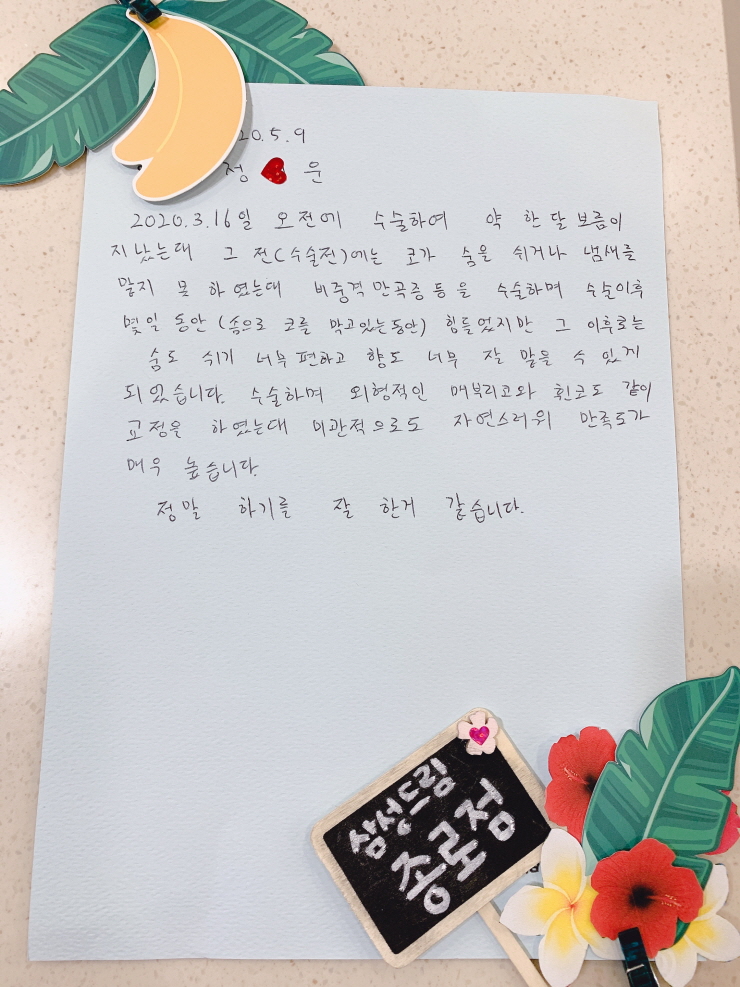 20.5.9
정 ♥ 운
2020.3.16일 오전에 수술하여 약 한달 보름이
지났는대 그 전(수술전)에는 코가 숨을 쉬거나 냄새를
맡지 못 하였는대 비중격만곡증 등을 수술하며 수술이후
몇일 동안 (솜으로 코를 막고있는동안) 힘들었지만 그 이후로는
숨도 쉬기 너무 편하고 향도 너무 잘 맡을 수 있게
되있습니다. 수술하며 외형적인 매부리코와 휜코도 같이
교정을 하였는대 미관적으로도 자연스러워 만족도가
매우 높습니다.
정말 하기를 잘 한거 같습니다.
삼성드림
종로점